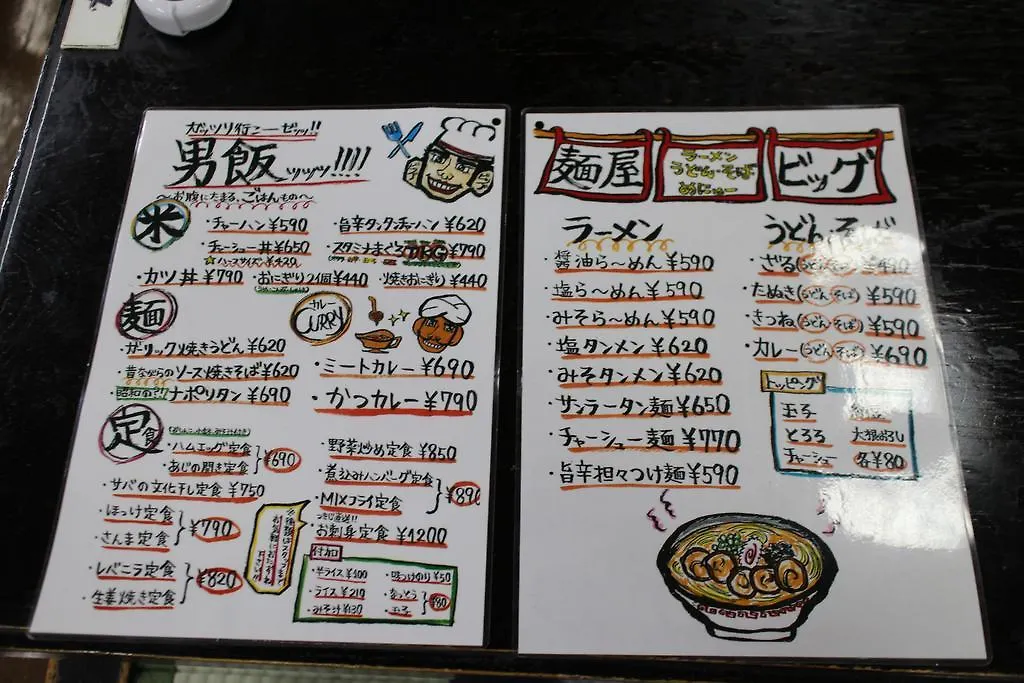 ガッツリ行こーゼッッ!!
男飯ッッッッ!!!!
〜お腹にたまる、ごはんもの〜
米
チャーハン ¥590
・旨辛タッタチャーハン ¥620
・チャーシュー丼 ¥650
・スタミナまぐろ ¥790
☆ハーフサイズ ¥420
・カツ丼 ¥790
・おにぎり 2個 ¥440
・焼きおにぎり ¥440
麺
・ガーリック焼きうどん ¥620
・昔ながらのソース焼きそば ¥620
・ナポリタン ¥690
カレー
CURRY
・ミートカレー ¥690
・かつカレー ¥790
定食
・ハムエッグ定食
・あじの開き定食
¥690
・サバの文化干し定食 ¥750
・ほっけ定食
・さんま定食
¥790
・レバニラ定食
・生姜焼き定食
¥820
・野菜炒め定食 ¥850
・煮込みハンバーグ定食
・MIXフライ定食
¥890
つきじ直送!!
・お刺身定食 ¥1200
付加
・半ライス ¥100
・ライス ¥210
・みそ汁 ¥130
・味つけのり ¥50
・なっとう
・玉子
¥80
麺屋
ラーメン
うどん・そば
めにゅー
ビッグ
ラーメン
・醤油ら〜めん ¥590
・塩ら〜めん ¥590
・みそら〜めん ¥590
・塩タンメン ¥620
・みそタンメン ¥620
・サンラータン麺 ¥650
・チャーシュー麺 ¥770
・旨辛担々つけ麺 ¥590
うどん・そば
・ざる(うどん そば) ¥490
・たぬき(うどん そば) ¥590
・きつね(うどん そば) ¥590
・カレー(うどん そば) ¥690
トッピング
玉子
とろろ
大根おろし
チャーシュー
各¥80